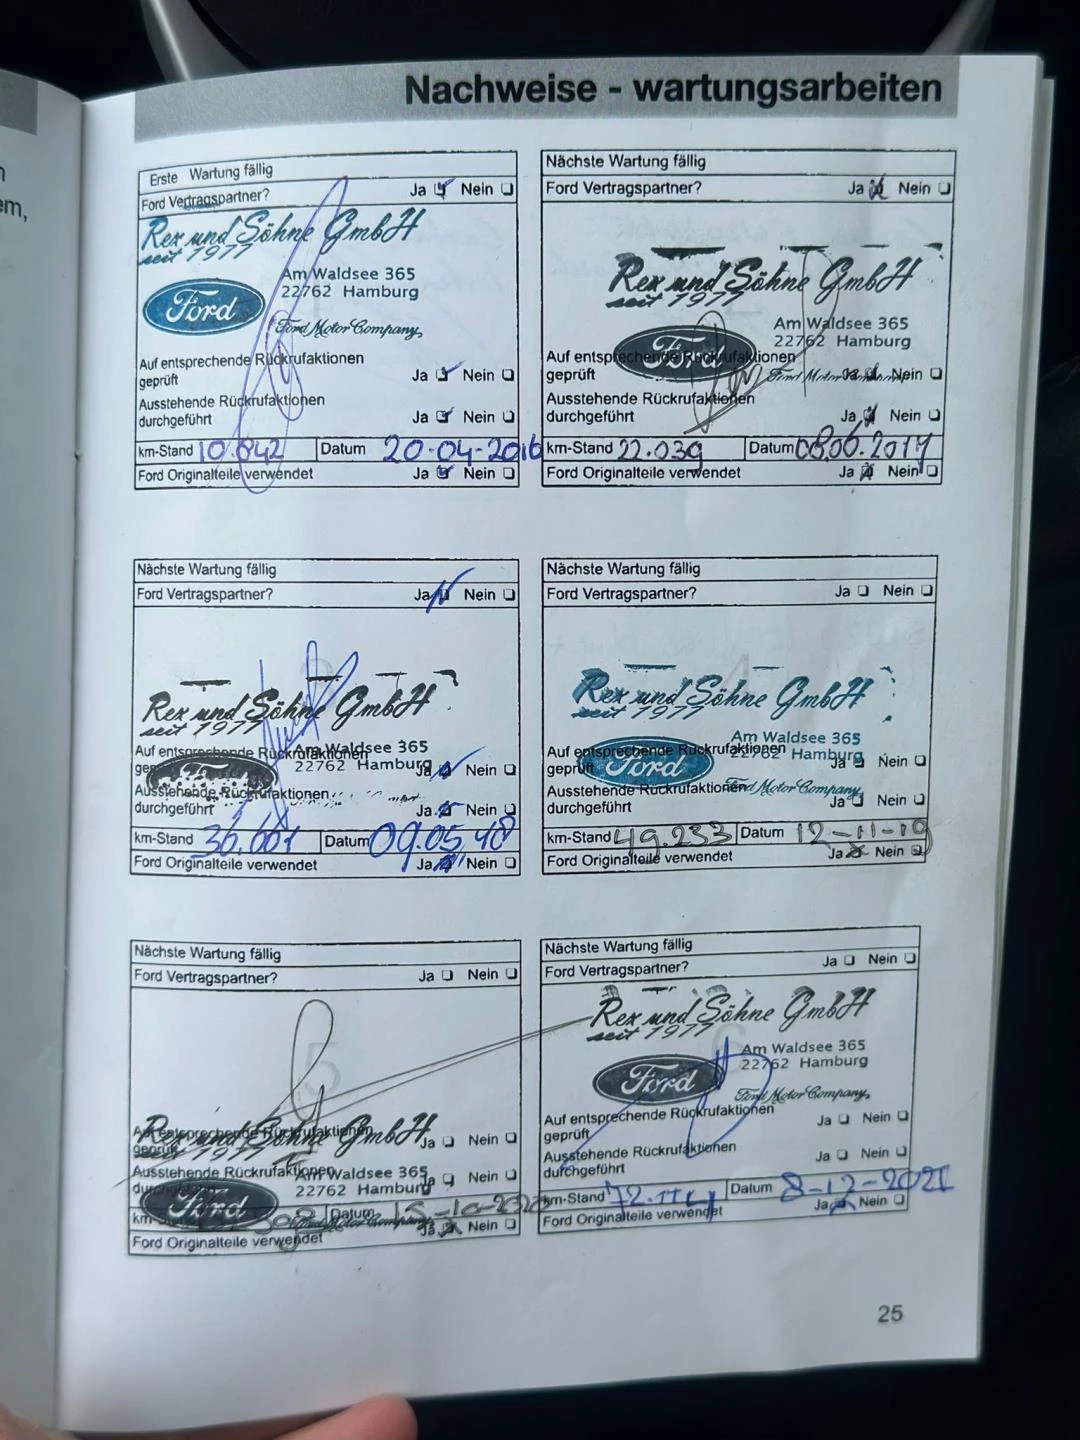 Nachweise - wartungsarbeiten
Erste Wartung fällig
Ford Vertragspartner? Ja Nein
Rex und Söhne GmbH
seit 1977
Am Waldsee 365
22762 Hamburg
Ford
Ford Motor Company
Auf entsprechende Rückrufaktionen
geprüft Ja Nein
Ausstehende Rückrufaktionen
durchgeführt Ja Nein
km-Stand 10.842 Datum 20-04-2016
Ford Originalteile verwendet Ja Nein
Nächste Wartung fällig
Ford Vertragspartner? Ja Nein
Rex und Söhne GmbH
seit 1977
Am Waldsee 365
22762 Hamburg
Ford
Auf entsprechende Rückrufaktionen
geprüft Ford Motor Ja Nein
Ausstehende Rückrufaktionen
durchgeführt Ja Nein
km-Stand 22.039 Datum 08.06.2017
Ford Originalteile verwendet Ja Nein
Nächste Wartung fällig
Ford Vertragspartner? Ja Nein
Rex und Söhne GmbH
seit 1977
Auf entsprechende Rückrufaktionen
Am Waldsee 365
22762 Hamburg
Ja Nein
Ausstehende Rückrufaktionen
durchgeführt Ja Nein
km-Stand 36.601 Datum 09.05.18
Ford Originalteile verwendet Ja Nein
Nächste Wartung fällig
Ford Vertragspartner? Ja Nein
Rex und Söhne GmbH
seit 1977
Am Waldsee 365
Auf entsprechende Rückrufaktionen
22762 Hamburg
geprüft Ford Ja Nein
Ausstehende Rückrufaktionen Ford Motor Company
durchgeführt Ja Nein
km-Stand 49.233 Datum 12-11-19
Ford Originalteile verwendet Ja Nein
Nächste Wartung fällig
Ford Vertragspartner? Ja Nein
5
Auf entsprechende Rückrufaktionen
Rex und Söhne GmbH
geprüft Ja Nein
seit 1977
Ausstehende Rückrufaktionen Am Waldsee 365
22762 Hamburg
durchgeführt Ja Nein
Ford
Datum 15-10-2020
Ford Motor Company
Ja Nein
Ford Originalteile verwendet
Nächste Wartung fällig
Ford Vertragspartner? Ja Nein
Rex und Söhne GmbH
seit 1977
6
Am Waldsee 365
22762 Hamburg
Ford
Ford Motor Company
Auf entsprechende Rückrufaktionen
geprüft Ja Nein
Ausstehende Rückrufaktionen
durchgeführt Ja Nein
km-Stand Datum 8-12-2021
Ford Originalteile verwendet Ja Nein
25